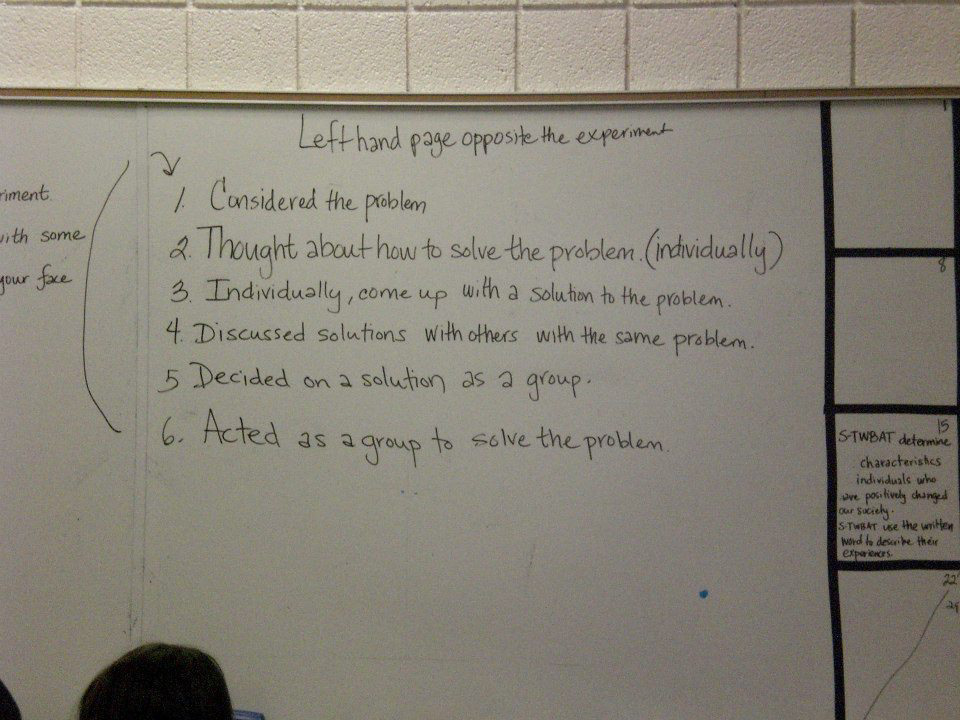 Left hand page opposite the experiment
1. Considered the problem
2. Thought about how to solve the problem. (individually)
3. Individually, come up with a solution to the problem.
4. Discussed solutions with others with the same problem.
5 Decided on a solution as a group.
6. Acted as a group to solve the problem.
riment.
with some
your face
1
8
15
S-TWBAT determine
characteristics
individuals who
have positively changed
our society.
S-TWBAT use the written
word to describe their
experiences.
22
29